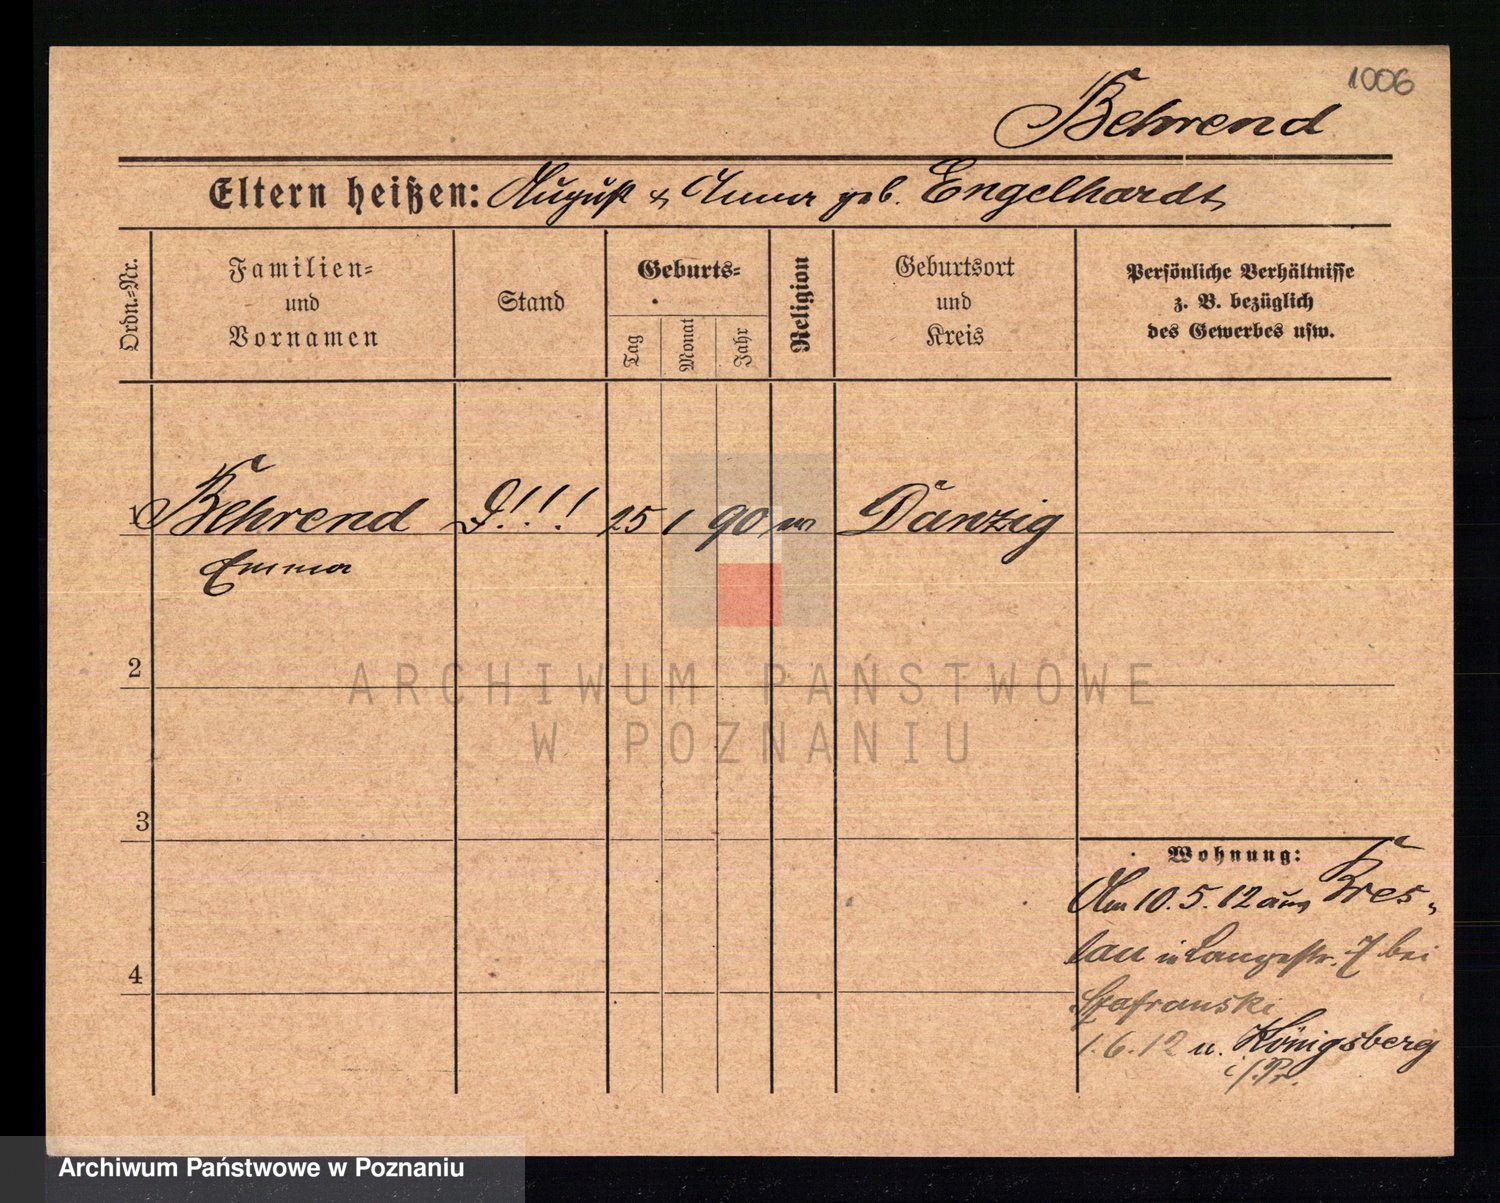 1006
Behrend
Eltern heißen: August & Anna geb. Engelhardt
Ordn.=Nr.
Familien=
und
Vornamen
Stand
Geburts=
Tag
Monat
Jahr
Religion
Geburtsort
und
Kreis
Persönliche Verhältnisse
z. B. bezüglich
des Gewerbes usw.
1 Behrend !!! 25 1 90 Danzig
Emma
2
ARCHIWUM PAŃSTWOWE
W POZNANIU
3
Wohnung:
Am 10.5.12 aus Bres-
lau in Langestr. 7 bei
Szafranski
1.6.12 n. Königsberg
i/Pr.
4
Archiwum Państwowe w Poznaniu